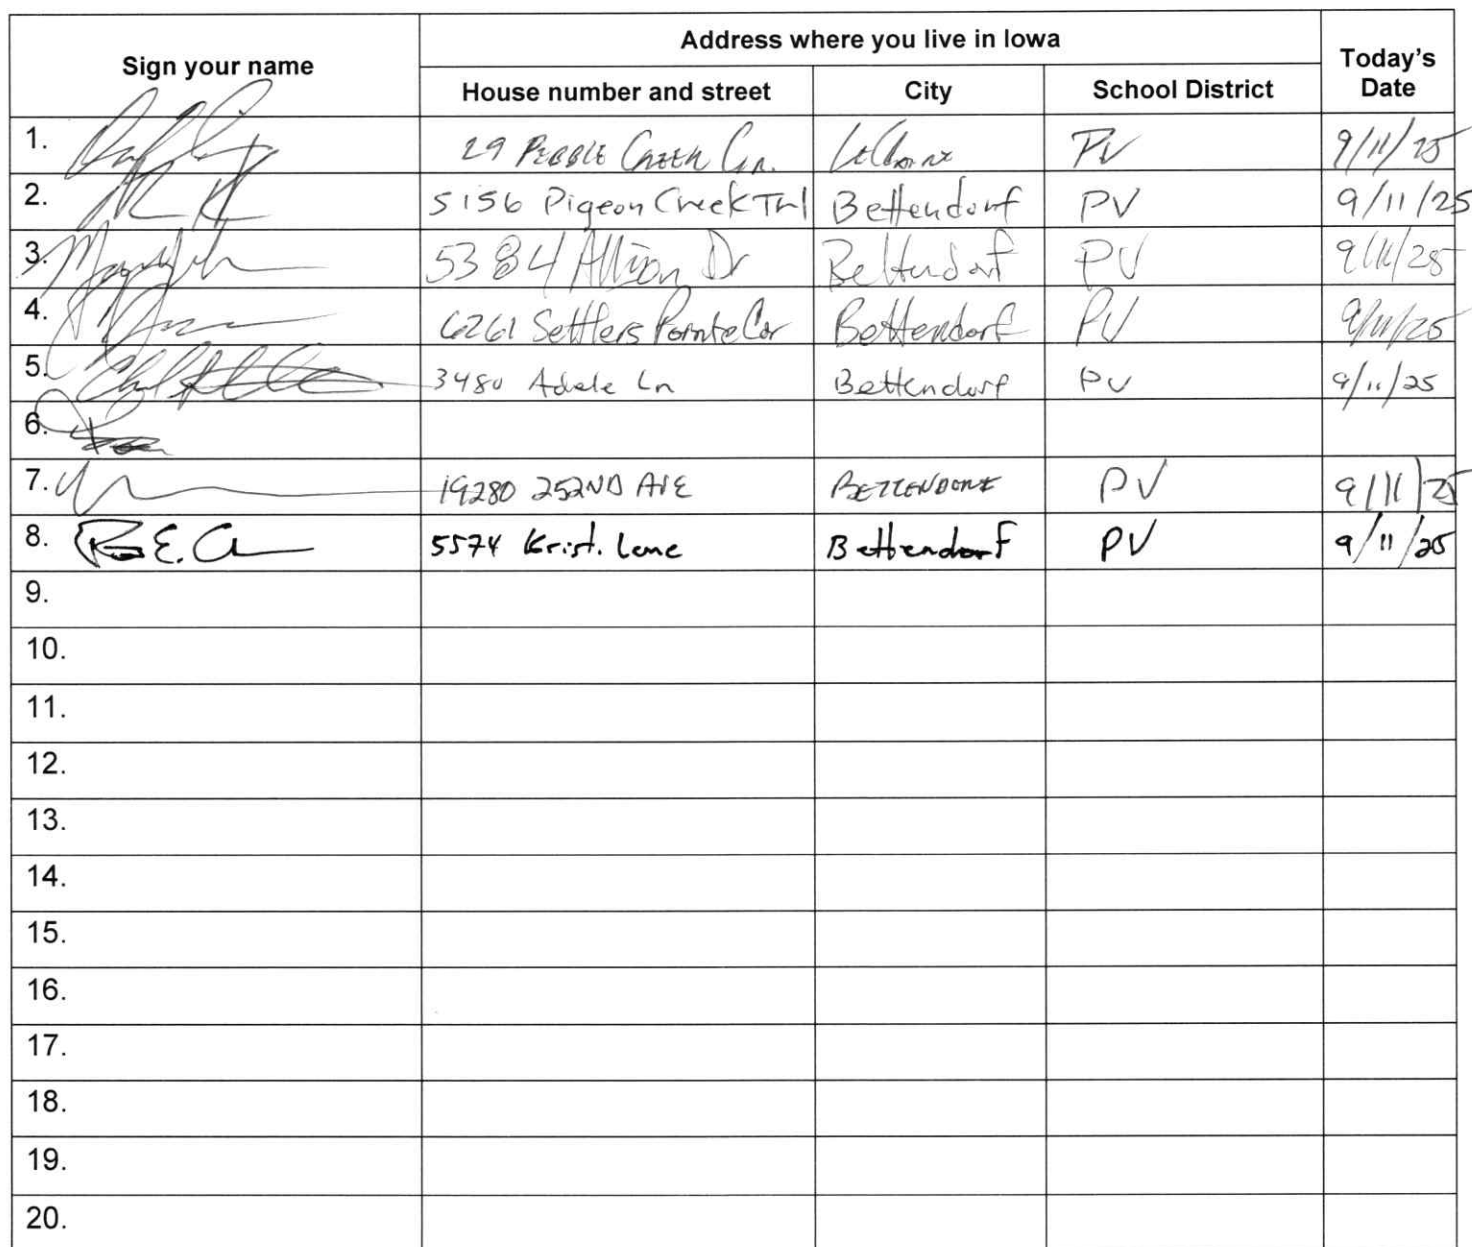 Sign your name
Address where you live in Iowa
Today's Date
House number and street City School District
1. 29 PEBBLE CREEK CIR. LeClaire PV 9/11/25
2. 5156 Pigeon Creek Trl Bettendorf PV 9/11/25
3. 5384 Allison Dr Bettendorf PV 9/11/25
4. 6261 Settlers Pointe Bettendorf PV 9/11/25
5. 3480 Adele Ln Bettendorf PV 9/11/25
6.
7. 19280 252ND AVE BETTENDORF PV 9/11/25
8. 5574 Krist. Lane Bettendorf PV 9/11/25
9.
10.
11.
12.
13.
14.
15.
16.
17.
18.
19.
20.